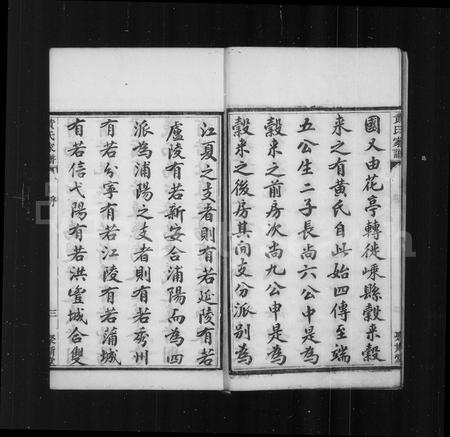 國又由花亭轉徙嵊縣穀来穀
来之有黄氏自此始四傳至端
五公生二子長尚六公申是為
穀来之前房次尚九公申是為
穀来之後房其间支分派别為
江夏之支者則有若延陵有若
廬陵有若新安合浦陽而為四
派為浦陽之支者則有若秀州
有若分寧有若江陵有若蒲城
有若信弋陽有若洪豐城合雙
黄氏家譜
序
三